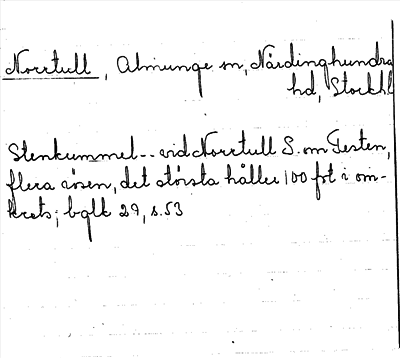 Norrtull, Almunge sn, Närdinghundra
hd, Stockhl
Stenkummel -- vid Norrtull S. om Testen,
flera rösen, det största håller 100 fot i om-
krets; bglb 29, s. 53